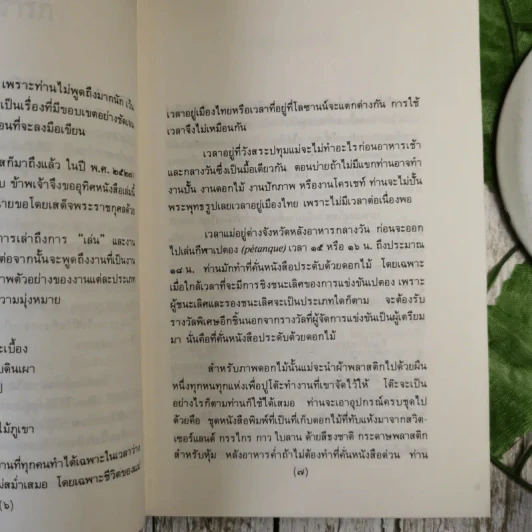 ารก
เพราะท่านไม่พูดถึงมากนัก เป็น
เป็นเรื่องที่มีขอบเขตอย่างชัดเจน
อนที่จะลงมือเขียน
สก็มาถึงแล้ว ในปี พ.ศ. ๒๕๒๓
บ ข้าพเจ้าจึงขออุทิศหนังสือเล่มนี้
ายขอบโดยเสด็จพระราชกุศลด้วย
การเล่าถึงการ "เล่น" และงาน
ต่อจากนั้นจะพูดถึงงานที่เป็นงาน
าพตัวอย่างของงานแต่ละประเภท
ความมุ่งหมาย
ะเบื้อง
บดินเผา
ป
ไม้ภูเขา
งานที่ทุกคนทำได้เฉพาะในเวลาว่าง
ม่สม่ำเสมอ โดยเฉพาะชีวิตของแม่
(๖)
เวลาอยู่เมืองไทยหรือเวลาที่อยู่ที่โลซานน์จะแตกต่างกัน การใช้
เวลาจึงไม่เหมือนกัน
เวลาอยู่ที่วังสระปทุมแม่จะไม่ทำอะไรก่อนอาหารเช้า
และกลางวันซึ่งเป็นมื้อเดียวกัน ตอนบ่ายถ้าไม่มีแขกท่านอาจทำ
งานปั้น งานดอกไม้ งานปักภาพ หรืองานโครเชท์ ท่านจะไม่ปั้น
พระพุทธรูปเลยเวลาอยู่เมืองไทย เพราะไม่มีเวลาต่อเนื่องพอ
เวลาแม่อยู่ต่างจังหวัดหลังอาหารกลางวัน ก่อนจะออก
ไปเล่นกีฬาเปตอง (pétanque) เวลา ๑๕ หรือ ๑๖ น. ถึงประมาณ
๑๘ น. ท่านมักทำที่คั่นหนังสือประดับด้วยดอกไม้ โดยเฉพาะ
เมื่อใกล้เวลาที่จะมีการชิงชนะเลิศของการแข่งขันเปตอง เพราะ
ผู้ชนะเลิศและรองชนะเลิศจะเป็นประเภทใดก็ตาม จะต้องรับ
รางวัลพิเศษอีกชิ้นนอกจากรางวัลที่ผู้จัดการแข่งขันเป็นผู้เตรียม
มา นั่นคือที่คั่นหนังสือประดับด้วยดอกไม้
สำหรับภาพดอกไม้นั้นแม่จะนำผ้าพลาสติกไปด้วยผืน
หนึ่งทุกหนทุกแห่งเพื่อปูโต๊ะทำงานที่เขาจัดไว้ให้ โต๊ะจะเป็น
อย่างไรก็ตามท่านก็ใช้ได้เสมอ ท่านจะเอาอุปกรณ์ครบชุดไป
ด้วยคือ ชุดหนังสือพิมพ์ที่เป็นที่เก็บดอกไม้ที่ทับแห้งมาจากสวิต-
เซอร์แลนด์ กรรไกร กาว ใบลาน ด้ายสีธงชาติ กระดาษพลาสติก
สำหรับหุ้ม หลังอาหารค่ำถ้าไม่ต้องทำที่คั่นหนังสือด่วน ท่าน
(๗)